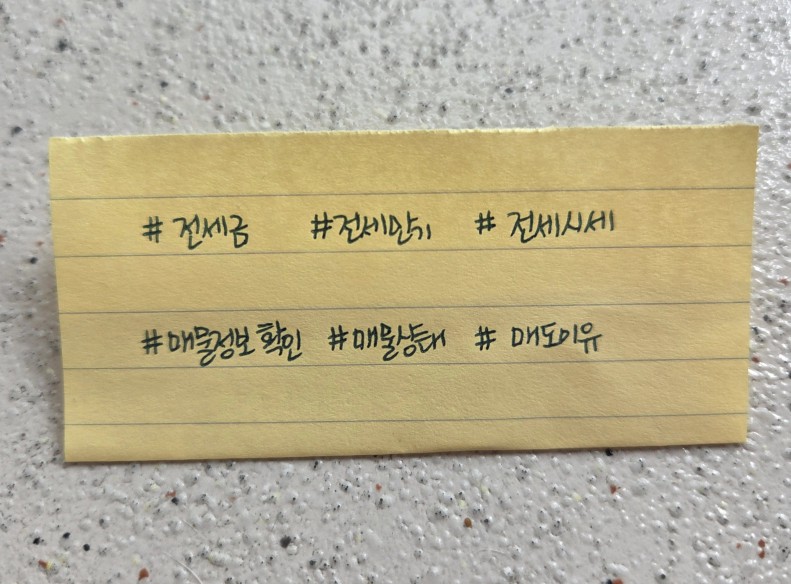 # 전세금 #전세만기 # 전세시세
#매물정보 확인 #매물상태 # 매도이유